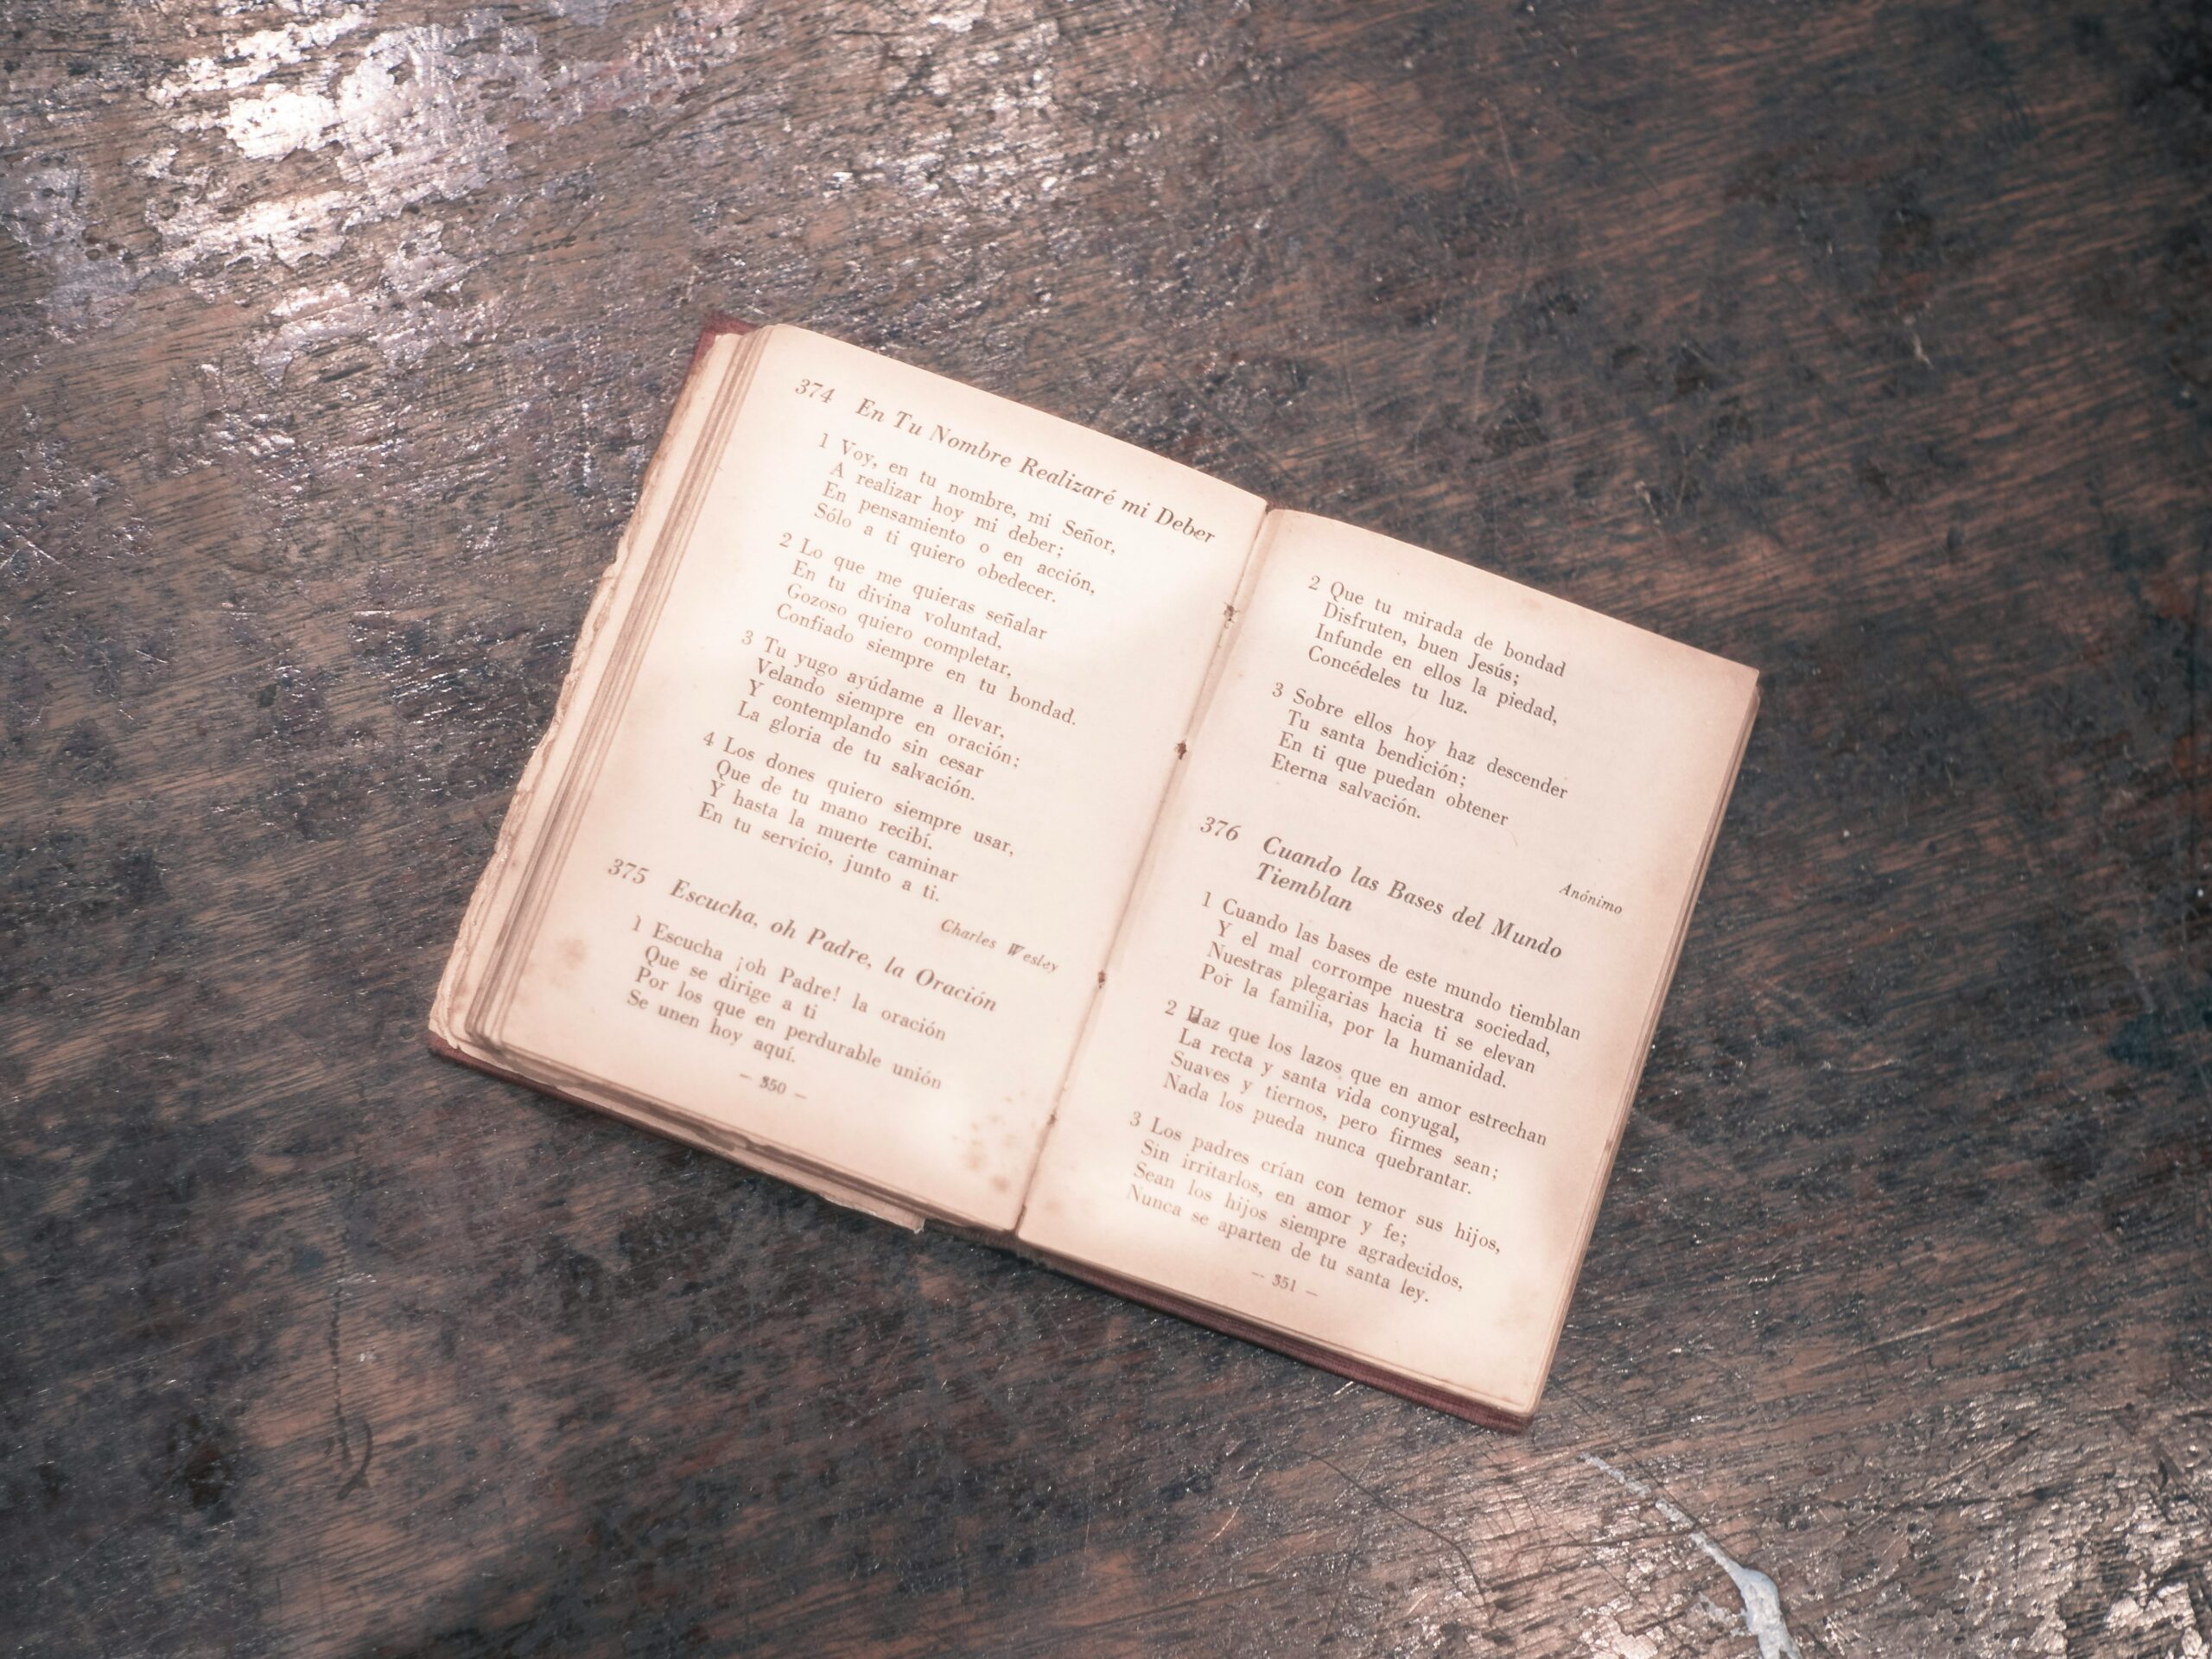 374 En Tu Nombre Realizaré mi Deber
1 Voy, en tu nombre, mi Señor,
A realizar hoy mi deber;
En pensamiento o en acción,
Sólo a ti quiero obedecer.
2 Lo que me quieras señalar
En tu divina voluntad,
Gozoso quiero completar,
Confiado siempre en tu bondad.
3 Tu yugo ayúdame a llevar,
Velando siempre en oración;
Y contemplando sin cesar
La gloria de tu salvación.
4 Los dones quiero siempre usar,
Que de tu mano recibí.
Y hasta la muerte caminar
En tu servicio, junto a ti.
Charles Wesley
375 Escucha, oh Padre, la Oración
1 Escucha ¡oh Padre! la oración
Que se dirige a ti
Por los que en perdurable unión
Se unen hoy aquí.
— 350 —
2 Que tu mirada de bondad
Disfruten, buen Jesús;
Infunde en ellos la piedad,
Concédeles tu luz.
3 Sobre ellos hoy haz descender
Tu santa bendición;
En ti que puedan obtener
Eterna salvación.
Anónimo
376 Cuando las Bases del Mundo
Tiemblan
1 Cuando las bases de este mundo tiemblan
Y el mal corrompe nuestra sociedad,
Nuestras plegarias hacia ti se elevan
Por la familia, por la humanidad.
2 Haz que los lazos que en amor estrechan
La recta y santa vida conyugal,
Suaves y tiernos, pero firmes sean;
Nada los pueda nunca quebrantar.
3 Los padres crían con temor sus hijos,
Sin irritarlos, en amor y fe;
Sean los hijos siempre agradecidos,
Nunca se aparten de tu santa ley.
— 351 —